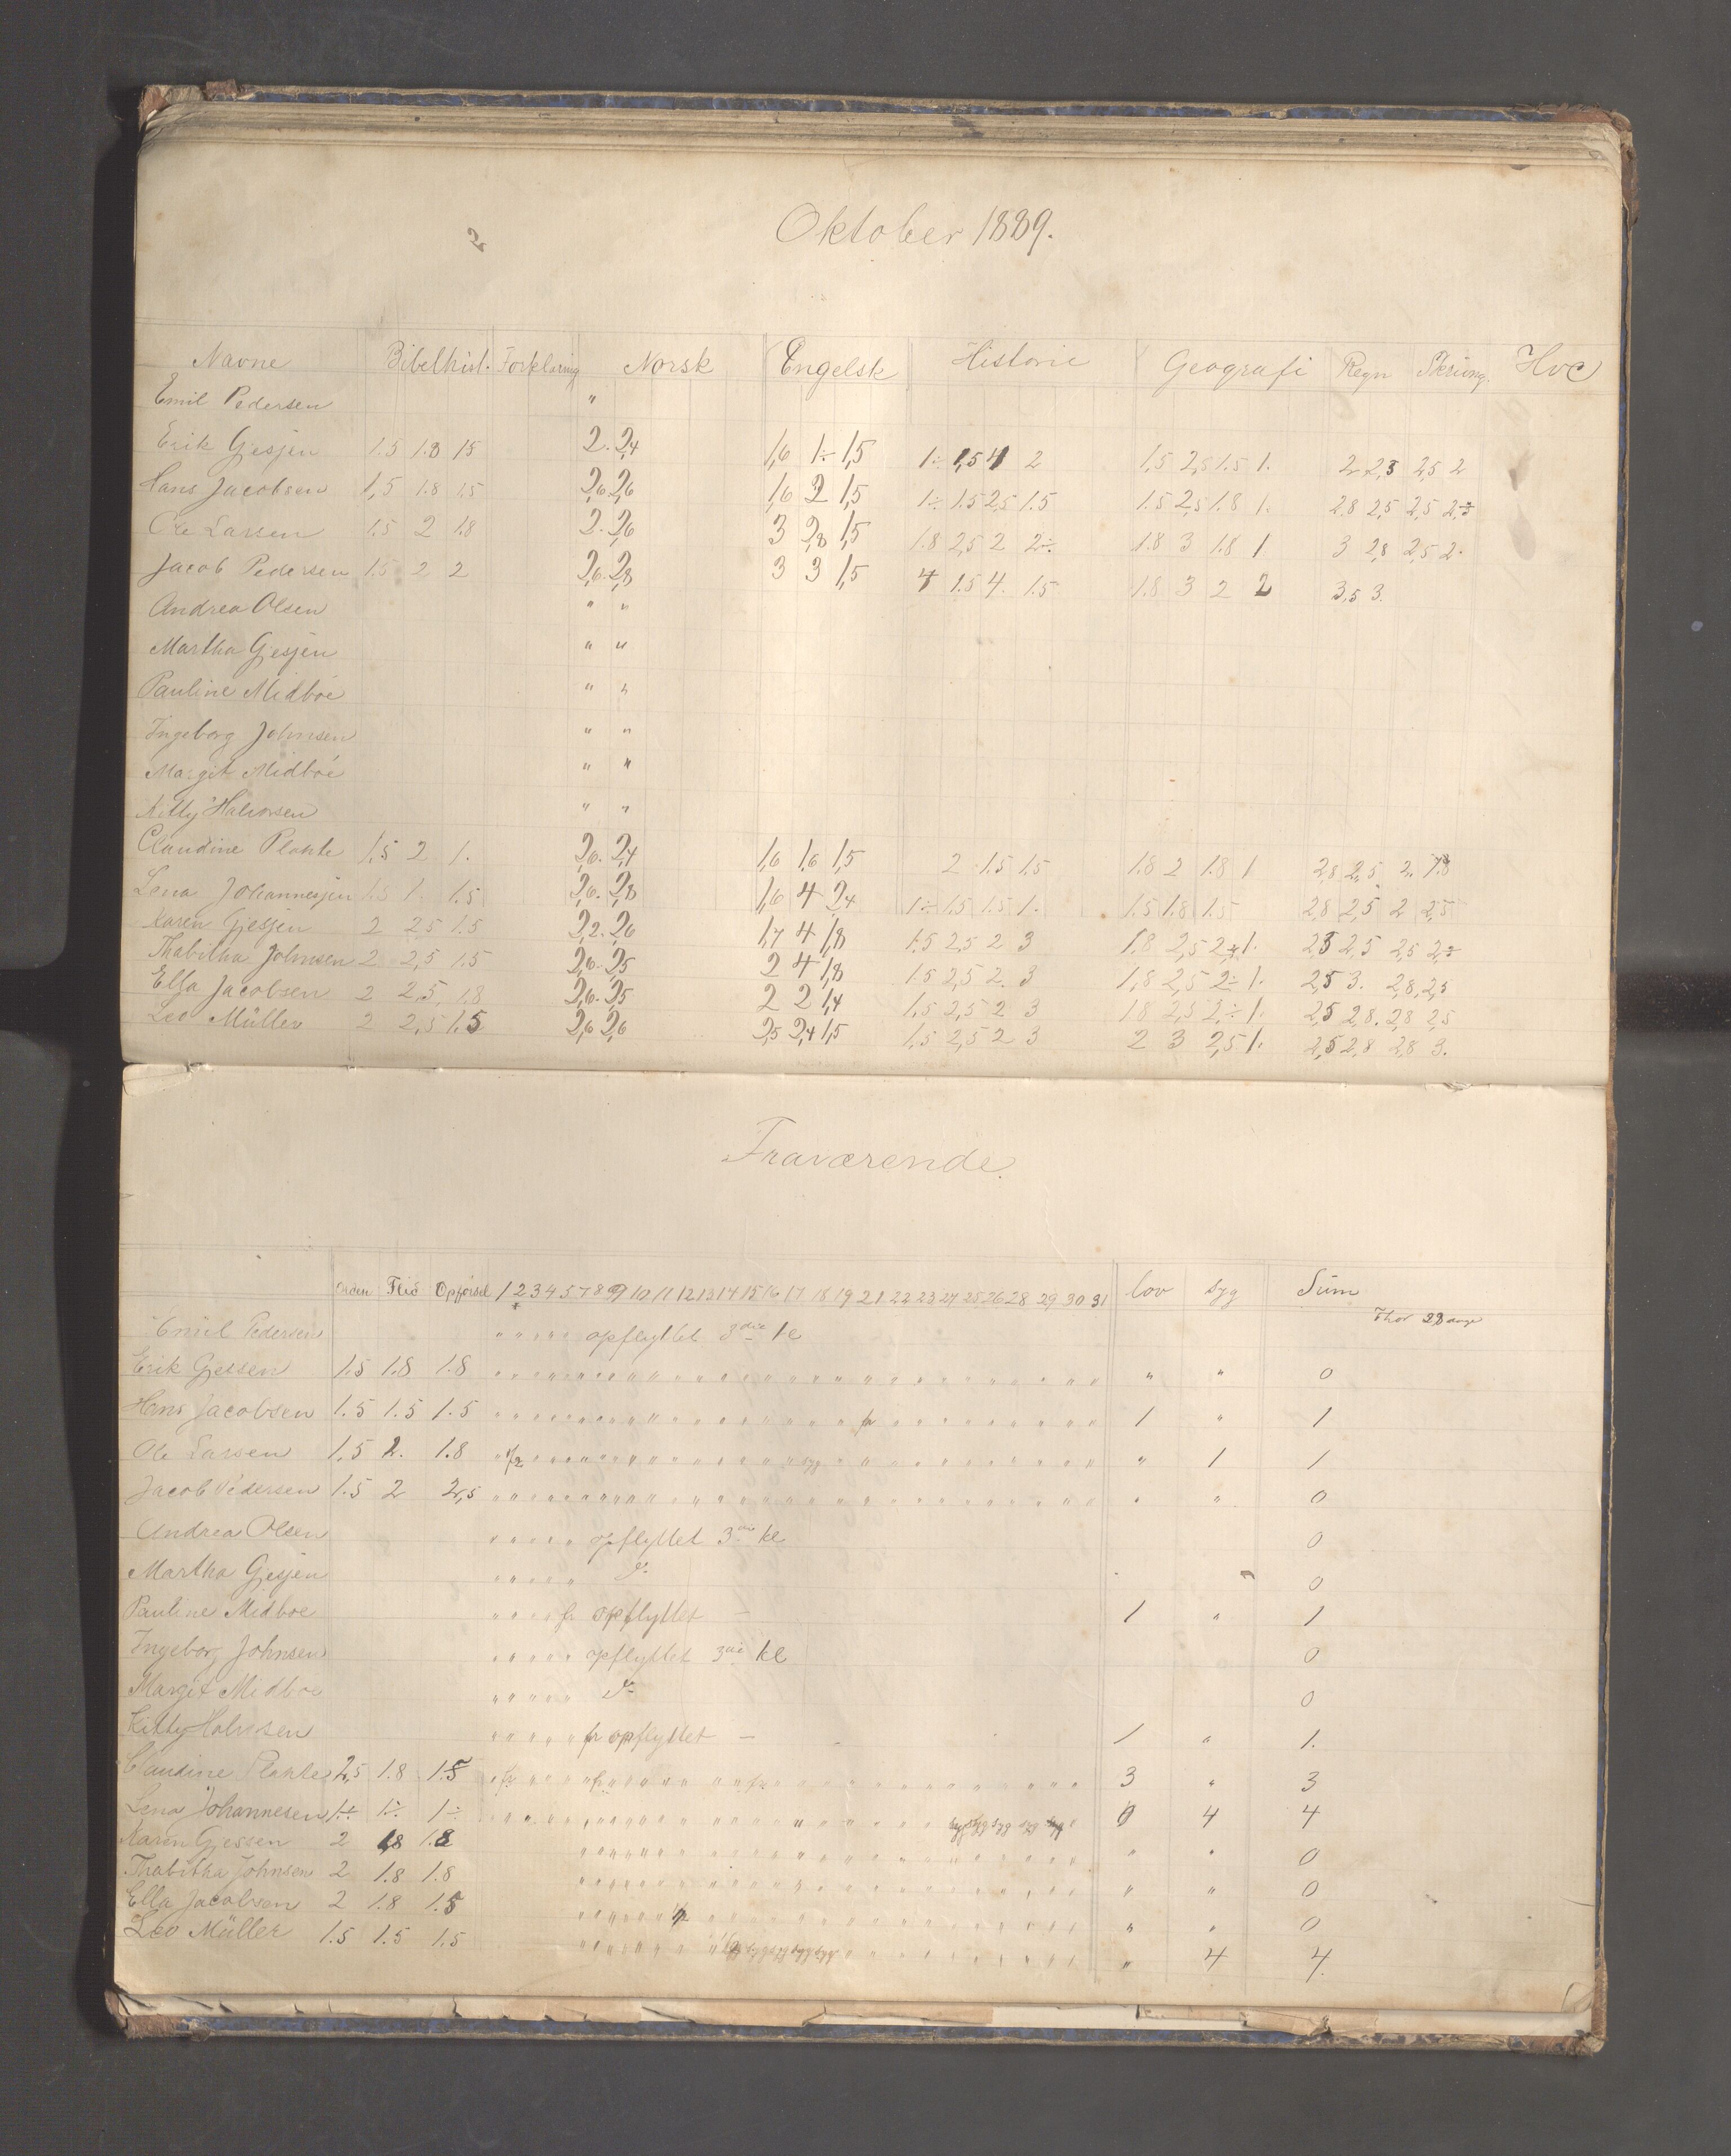 Oktober 1889.
Navne Bibelhist. Forklaring Norsk Engelsk Historie Geografi Regn Skrivng. Hvc
Emil Pedersen "
Erik Gjesjen 1.5 1.8 15 2. 2,4 1,6 1÷ 1,5 1÷ 1,5 4 2 1,5 2,5 1.5 1. 2 2,3 2,5 2
Hans Jacobsen 1,5 1.8 1.5 2,6 2,6 1,6 2 1,5 1÷ 1.5 2,5 1.5 1.5 2,5 1.8 1. 2,8 2,5 2,5 2,÷
Ole Larsen 1.5 2 1.8 2. 2,6 3 2,8 1,5 1.8 2,5 2 2÷ 1.8 3 1.8 1 3 2,8 2,5 2.
Jacob Pedersen 1.5 2 2 2,6. 2,8 3 3 1,5 4 1.5 4. 1.5 1.8 3 2 2 3,5 3.
Andrea Olsen " "
Martha Gjesjen " "
Pauline Midböe " "
Ingeborg Johnsen " "
Margit Midböe " "
Kitty Halvorsen " "
Claudine Plahte 1,5 2 1. 2,6. 2,4 1,6 1,6 1,5 2 1.5 1.5 1.8 2 1.8 1 2,8 2,5 2. 1,8
Lena Johannesjen 1.5 1. 1.5 2,6. 2,8 1,6 4 2,4 1÷ 1.5 1.5 1. 1.5 1.8 1.5 2,8 2,5 2 2,5
Karen Gjesjen 2 2,5 1.5 2,2. 2,6 1,7 4 1,8 1.5 2,5 2 3 1.8 2,5 2,÷ 1. 2,5 2,5 2,5 2,÷
Thabitha Johnsen 2 2,5 1.5 2,6. 2,5 2 4 1,8 1.5 2,5 2. 3 1,8 2,5 2÷ 1. 2,5 3. 2,8, 2,5
Ella Jacobsen 2 2,5, 1,8 2,6. 2,5 2 2 1,4 1,5 2,5 2 3 1.8 2,5 2,÷ 1. 2,5 2,8. 2,8 2,5
Leo Müller 2 2,5 1,5 2,6 2,6 2,5 2,4 1,5 1,5 2,5 2 3 2 3 2,5 1. 2,5 2,8 2,8 3.
Fraværende.
Orden Flid Opförsel 1 2 3 4 5 7 8 9 10 11 12 13 14 15 16 17 18 19 21 22 23 24 25 26 28 29 30 31 lov syg Sum
Emil Pedersen " " " " " opflyttet 3die kl
Erik Gjessen 1.5 1.8 1.8 " " 0
Hans Jacobsen 1.5 1.5 1.5 fr 1 " 1
Ole Larsen 1,5 2. 1.8 syg " 1 1
Jacob Pedersen 1.5 2 2,5 " " 0
Andrea Olsen " " " " " opflyttet 3die kl 0
Martha Gjesjen " " " " " do 0
Pauline Midboe " " " " fr opflyttet — 1 " 1
Ingeborg Johnsen " " " " " opflyttet 3die kl 0
Margit Midboe " " " " " do 0
Kitty Halvorsen " " " " " fr opflyttet — 1 " 1.
Claudine Plahte 2,5 1.8 1.5 fr fr fr 3 " 3
Lena Johannesen 1÷ 1÷ 1÷ syg syg syg syg syg 0 4 4
Karen Gjessen 2 1,8 1.8 " " 0
Thabitha Johnsen 2 1.8 1.8 " " 0
Ella Jacobsen 2 1.8 1.5 " " 0
Leo Müller 1.5 1.5 1,5 syg syg syg syg " 4 4.